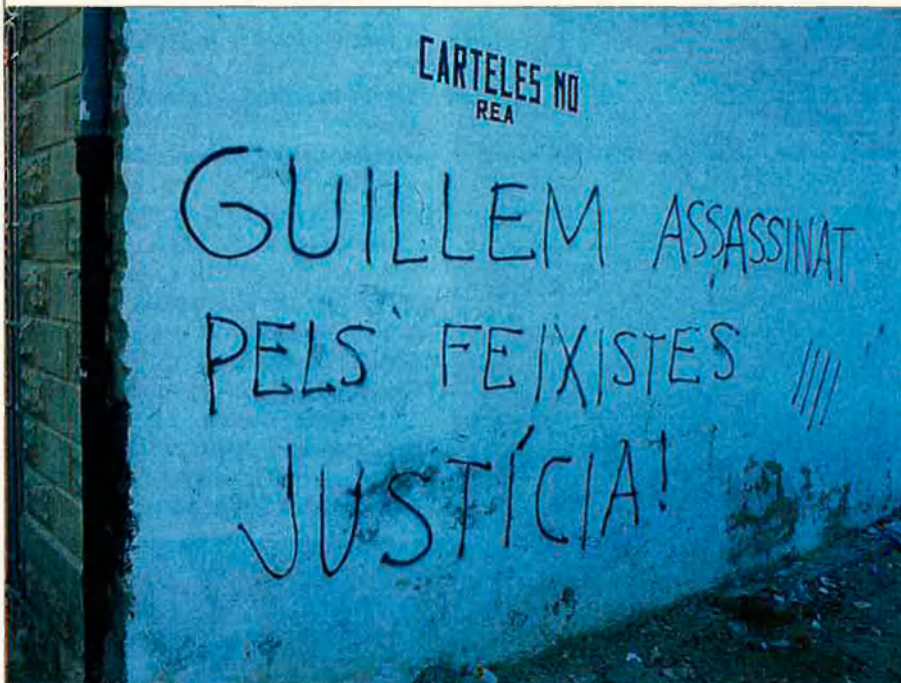 CARTELES NO
REA
GUILLEM ASSASSINAT
PELS FEIXISTES ////
JUSTÍCIA!